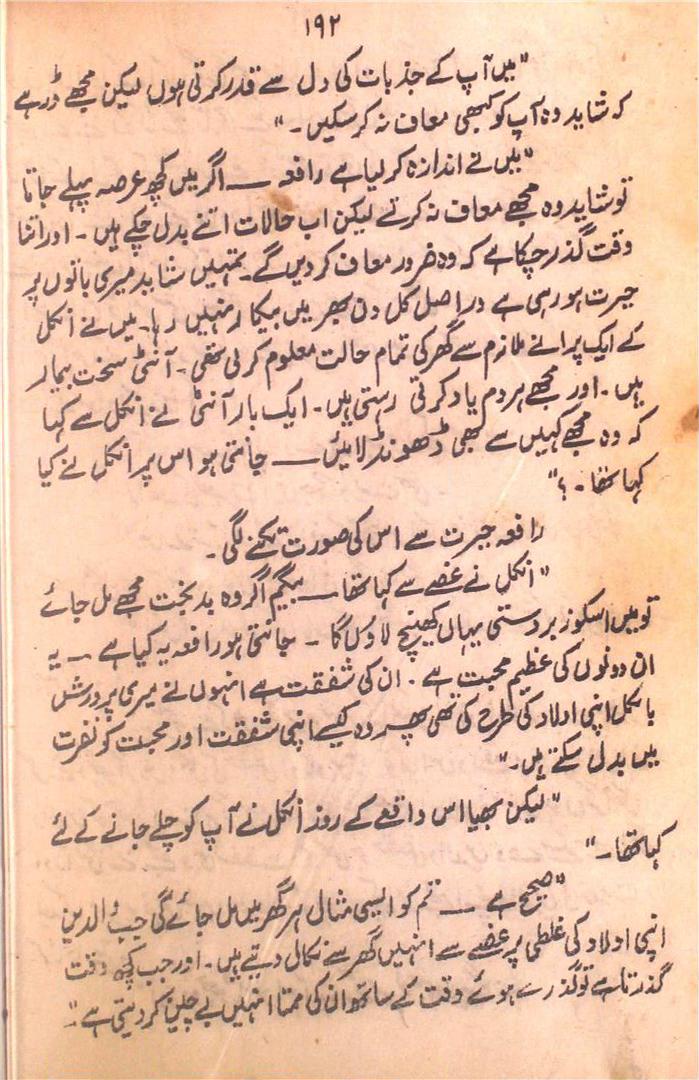 ۱۹۲
"میں آپ کے جذبات کی دل سے قدر کرتی ہوں لیکن مجھے ڈر ہے
کہ شاید وہ آپ کو کبھی معاف نہ کر سکیں ۔"
"میں نے اندازہ کر لیا ہے رافعہ ـــ اگر میں کچھ عرصہ پہلے جاتا
تو شاید وہ مجھے معاف نہ کرتے لیکن اب حالات اتنے بدل چکے ہیں ۔ اور اتنا
وقت گذر چکا ہے کہ وہ ضرور معاف کر دیں گے۔ تمہیں شاید میری باتوں پر
حیرت ہو رہی ہے دراصل کل دن بھر میں بیکار نہیں رہا۔ میں نے انکل
کے ایک پرانے ملازم سے گھر کی تمام حالت معلوم کر لی تھی ۔ آنٹی سخت بیمار
ہیں ۔ اور مجھے ہر دم یاد کرتی رہتی ہیں ۔ ایک بار آنٹی نے انکل سے کہا
کہ وہ مجھے کہیں سے بھی ڈھونڈ لائیں ـــ جانتی ہو اس پر انکل نے کیا
کہا تھا ۔ ؟"
رافعہ حیرت سے اس کی صورت تکنے لگی ۔
"انکل نے غصے سے کہا تھا ـــ بیگم اگر وہ بدبخت مجھے مل جائے
تو میں اسکو زبردستی یہاں کھینچ لاؤں گا ۔ جانتی ہو رافعہ یہ کیا ہے ـــ یہ
ان دونوں کی عظیم محبت ہے ۔ ان کی شفقت ہے انہوں نے میری پرورش
بالکل اپنی اولاد کی طرح کی تھی پھر وہ کیسے اپنی شفقت اور محبت کو نفرت
میں بدل سکتے ہیں ۔"
"لیکن بھیا اس واقعے کے روز انکل نے آپ کو چلے جانے کے لئے
کہا تھا ۔"
"صحیح ہے ـــ تم کو ایسی مثال ہر گھر میں مل جائے گی جب والدین
اپنی اولاد کی غلطی پر غصے سے انہیں گھر سے نکال دیتے ہیں ۔ اور جب کچھ وقت
گذرتا ہے تو گذرے ہوئے وقت کے ساتھ ان کی ممتا انہیں بے چین کر دیتی ہے ۔"